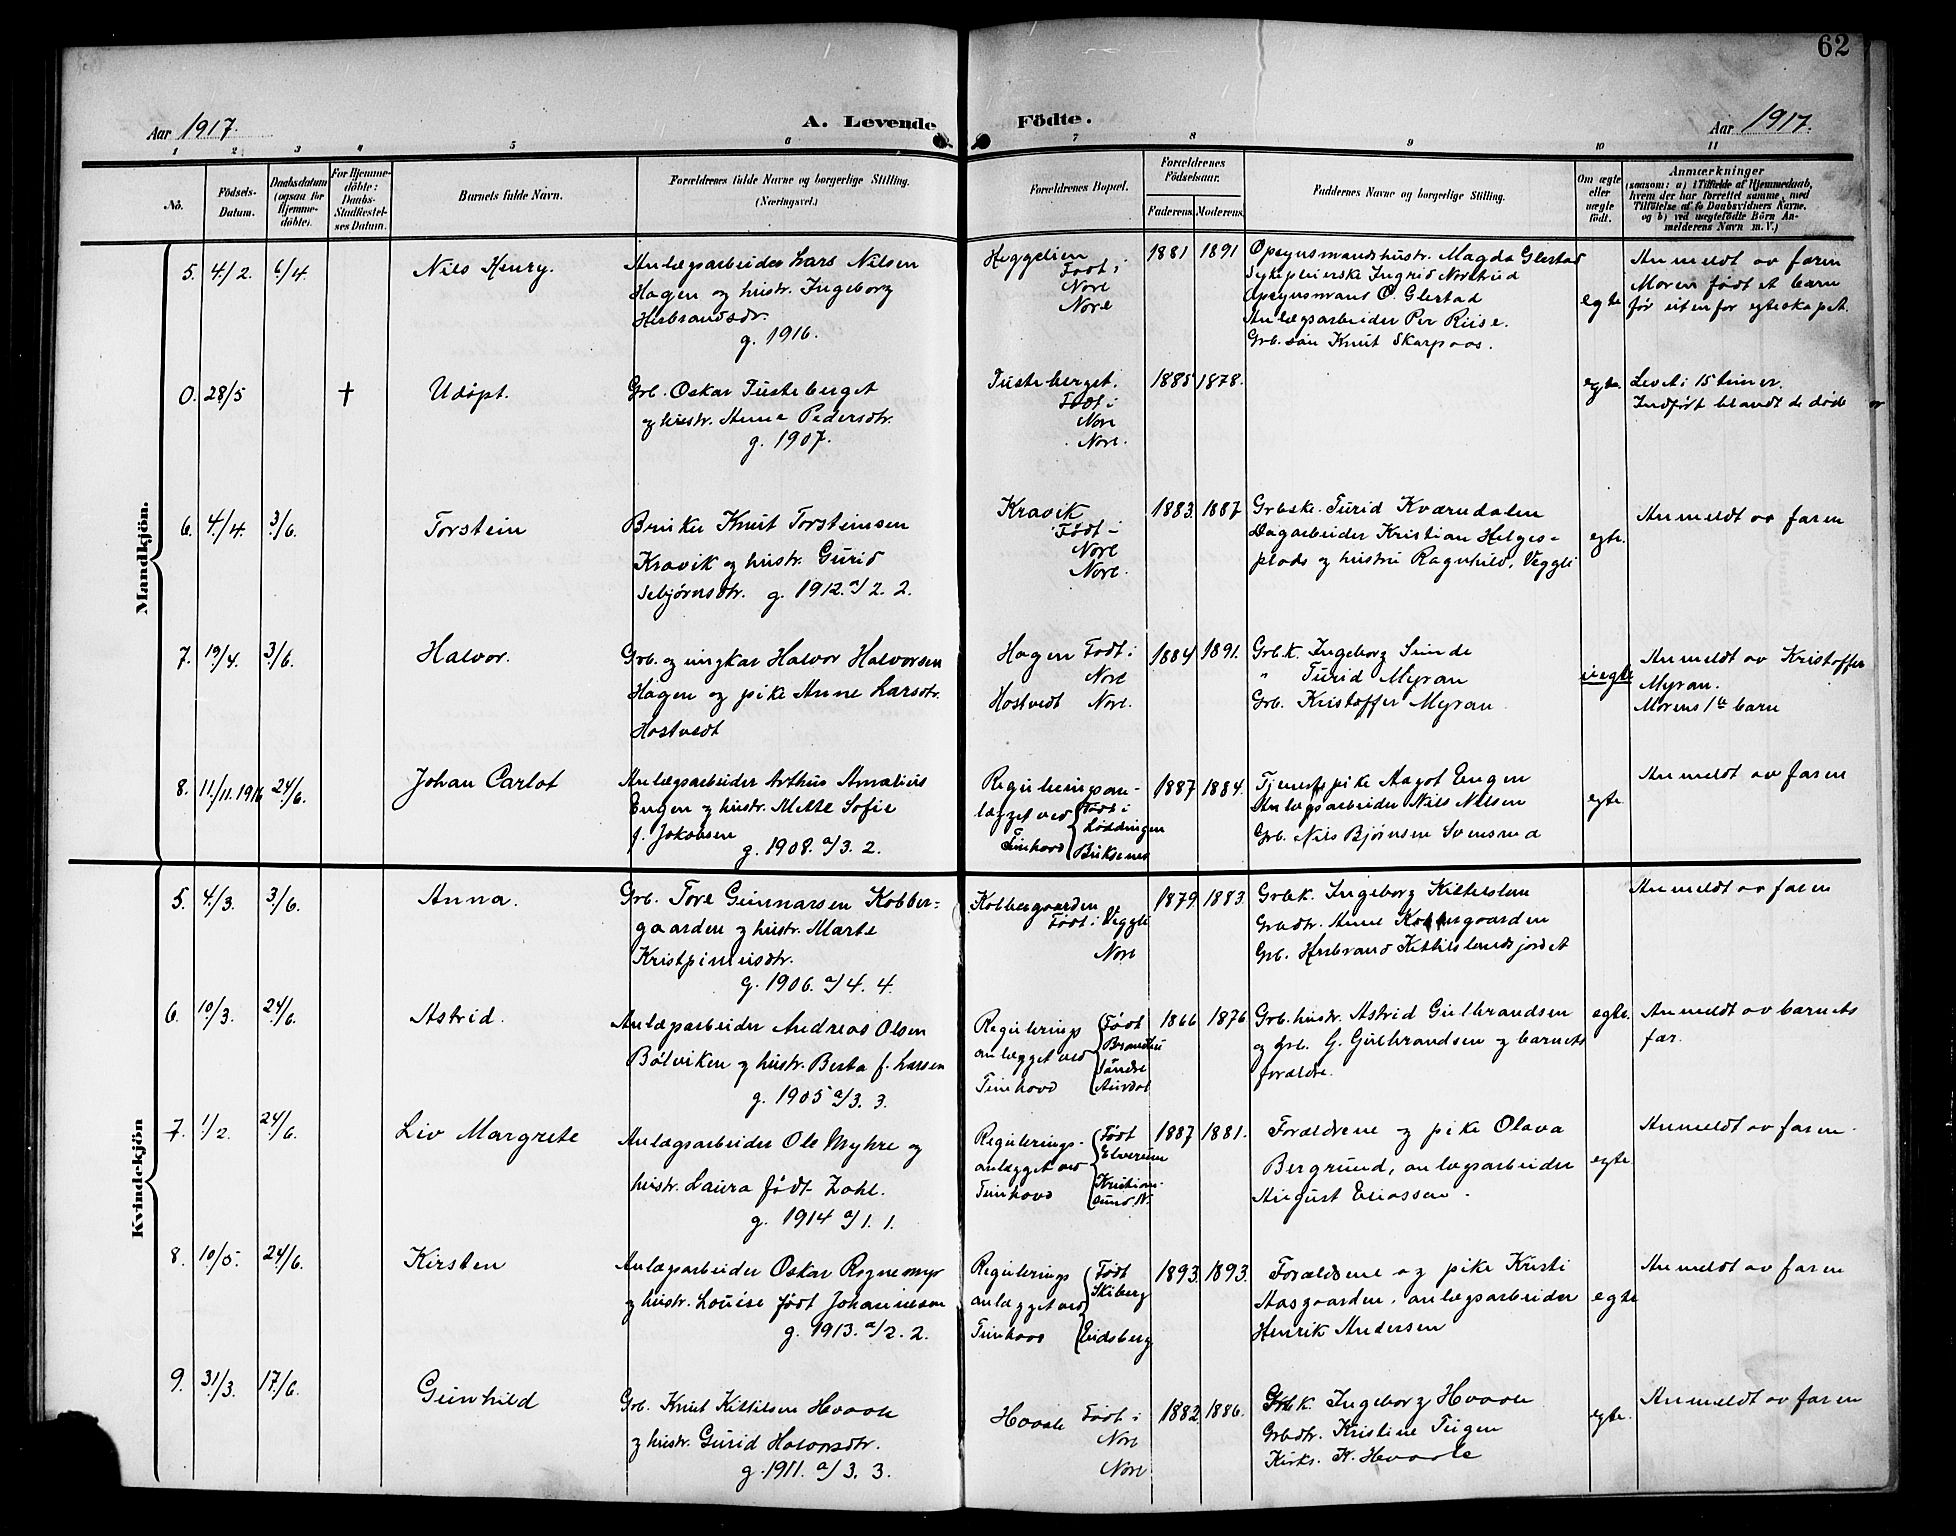 62
Aar 1917.
A. Levende Födte.
Aar 1917.
1 2 3 4 5 6 7 8 9 10 11
No.
Födsels-Datum.
Daabsdatum (ogsaa for Hjemme-döbte).
For Hjemme-döbte: Daabs-Stadfæstel-ses Datum.
Barnets fulde Navn.
Forældrenes fulde Navne og borgerlige Stilling.
(Næringsvei.)
Forældrenes Bopæl.
Forældrenes Födselsaar.
Faderens. Moderens.
Faddernes Navne og borgerlige Stilling.
Om ægte eller uægte födt.
Anmærkninger
(saasom: a) i Tilfælde af Hjemmedaab,
hvem der har forrettet samme, med
Tilföielse af to Daabsvidners Navne,
og b) ved uægtefödte Börn An-
melderens Navn m. V.)
Mandkjön.
5. 4/2. 6/4. Nils Henry.
Anlægsarbeider Lars Nilsen
Hagen og hustr. Ingeborg
Herbrandsdr.
g. 1916.
Heggelien
Født i
Nore
Nore
1881 1891
Opsynsmandshustr. Magda Glestad
Sykepleierske Ingrid Norstrud
Opsynsmand O. Glestad
Anlægsarbeider Per Riise.
Grb. søn Knut Skarpaas.
egte
Anmeldt av faren
Moren født et barn
før utenfor egteskapet.
0. 28/5 † Udöpt.
Grb. Oskar Tusteberget
og hustr. Anne Pedersdtr.
g. 1907.
Tusteberget.
Født i
Nore
Nore.
1885 1878.
egte.
Levet i 15 timer.
Indført blandt de døde
6. 4/4. 3/6. Torstein
Bruker Knut Torsteinsen
Kravik og hustr. Gurid
Sebjørnsdtr. g. 1912. a/ 2. 2.
Kravik
Født i
Nore
Nore.
1883. 1887
Grbske. Turid Kværndalen
Dagarbeider Kristian Helges-
plads og hustru Ragnhild, Veggli
egte.
Anmeldt av faren
7. 19/4. 3/6. Halvor.
Grb. og ungkar Halvor Halvorsen
Hagen og pike Anne Larsdtr.
Hostvedt
Hagen Født i
Nore
Hostvedt Nore.
1884 1891.
Grb.k. Ingeborg Simde
" Turid Myran
Grb. Kristoffer Myran
uegte
Anmeldt av Kristoffer
Myran.
Morens 1ste barn
8. 11/11.1916 24/6. Johan Carlot
Anlægsarbeider Arthur Amalius
Engen og hustr. Mette Sofie
f. Jakobsen
g. 1908. a/3. 2.
Reguleringsan-
lægget ved
Tunhovd
Født i
Løddingen
Buksnes
1887 1884.
Tjenestepike Aagot Engen
Anlægsarbeider Nils Nilsen
Grb. Nils Bjørnsen Svensrud
egte.
Anmeldt av faren
Kvindekjön
5. 4/3. 3/6. Anna.
Grb. Tore Gunnarsen Kobber-
gaarden og hustr. Marte
Kristpinusdtr.
g. 1906. a/4. 4.
Kobbergaarden
Født i Veggli
Nore
1879. 1883.
Grb.k. Ingeborg Kittilsland
Grbdtr. Anne Kobbergaarden
Grb. Herbrand Kittilslandsjordet
Anmeldt av faren
6. 10/3. 24/6. Astrid.
Anlægsarbeider Andreas Olsen
Bölviken og hustr. Berta f. Larsen
g. 1905 a/3. 3.
Regulerings
anlægget ved
Tunhovd
Født
Brandbu
Søndre
Aurdal
1866 1876
Grb. hustr. Astrid Gulbrandsen
og grb. G. Gulbrandsen og barnets
forældre.
egte.
Anmeldt av barnets
far.
7. 1/2. 24/6. Liv Margrete
Anlægsarbeider Ole Myhre og
hustr. Laura født Zahl.
g. 1914 a/1. 1.
Regulerings-
anlægget ved
Tunhovd
Født
Elverum
Kristian-
sund N.
1887 1881.
Forældrene og pike Olava
Bergrund, anlægsarbeider
August Eliassen.
egte.
Anmeldt av faren.
8. 10/5. 24/6. Kirsten
Anlægsarbeider Oskar Rognemyr
og hustr. Louise født Johannesen
g. 1913. a/2. 2.
Regulerings
anlægget ved
Tunhovd
Født
Skiberg
Eidsberg
1893. 1893.
Forældrene og pike Kristi
Aasgaarden, anlægsarbeider
Henrik Andersen
egte
Anmeldt av faren
9. 31/3. 17/6. Gunhild
Grb. Knut Kittilsen Hvaale
og hustr. Gurid Halvorsdtr.
g. 1911. a/3. 3.
Hvaale Født i
Nore
Nore
1882 1886.
Grb.k. Ingeborg Hvaale
Grbdtr. Kristine Teigen
Kirks. K. Hvaale
egte.
Anmeldt av faren